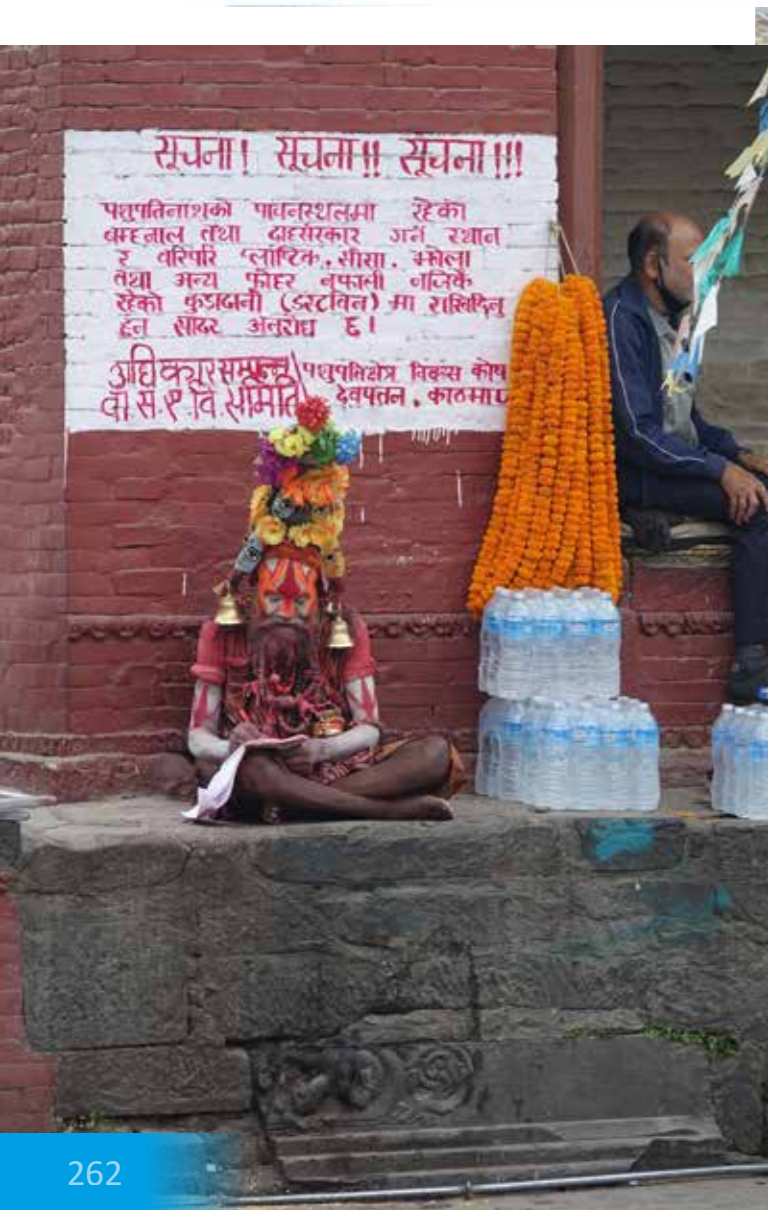 सूचना! सूचना!! सूचना!!!
पशुपतिनाथको पावनस्थलमा रहेको
बम्हनाल तथा दाहसंस्कार गर्ने स्थान
र वरिपरि प्लाष्टिक, सीसा, झोला
तथा अन्य फोहर नफाली नजिकै
रहेको कुडादानी (डस्टविन) मा राखिदिनु
हुन सादर अनुरोध छ।
अधिकार सम्पन्न पशुपतिक्षेत्र विकास कोष
वा.स.ए.वि.समिति देवपत्तन, काठमा
262